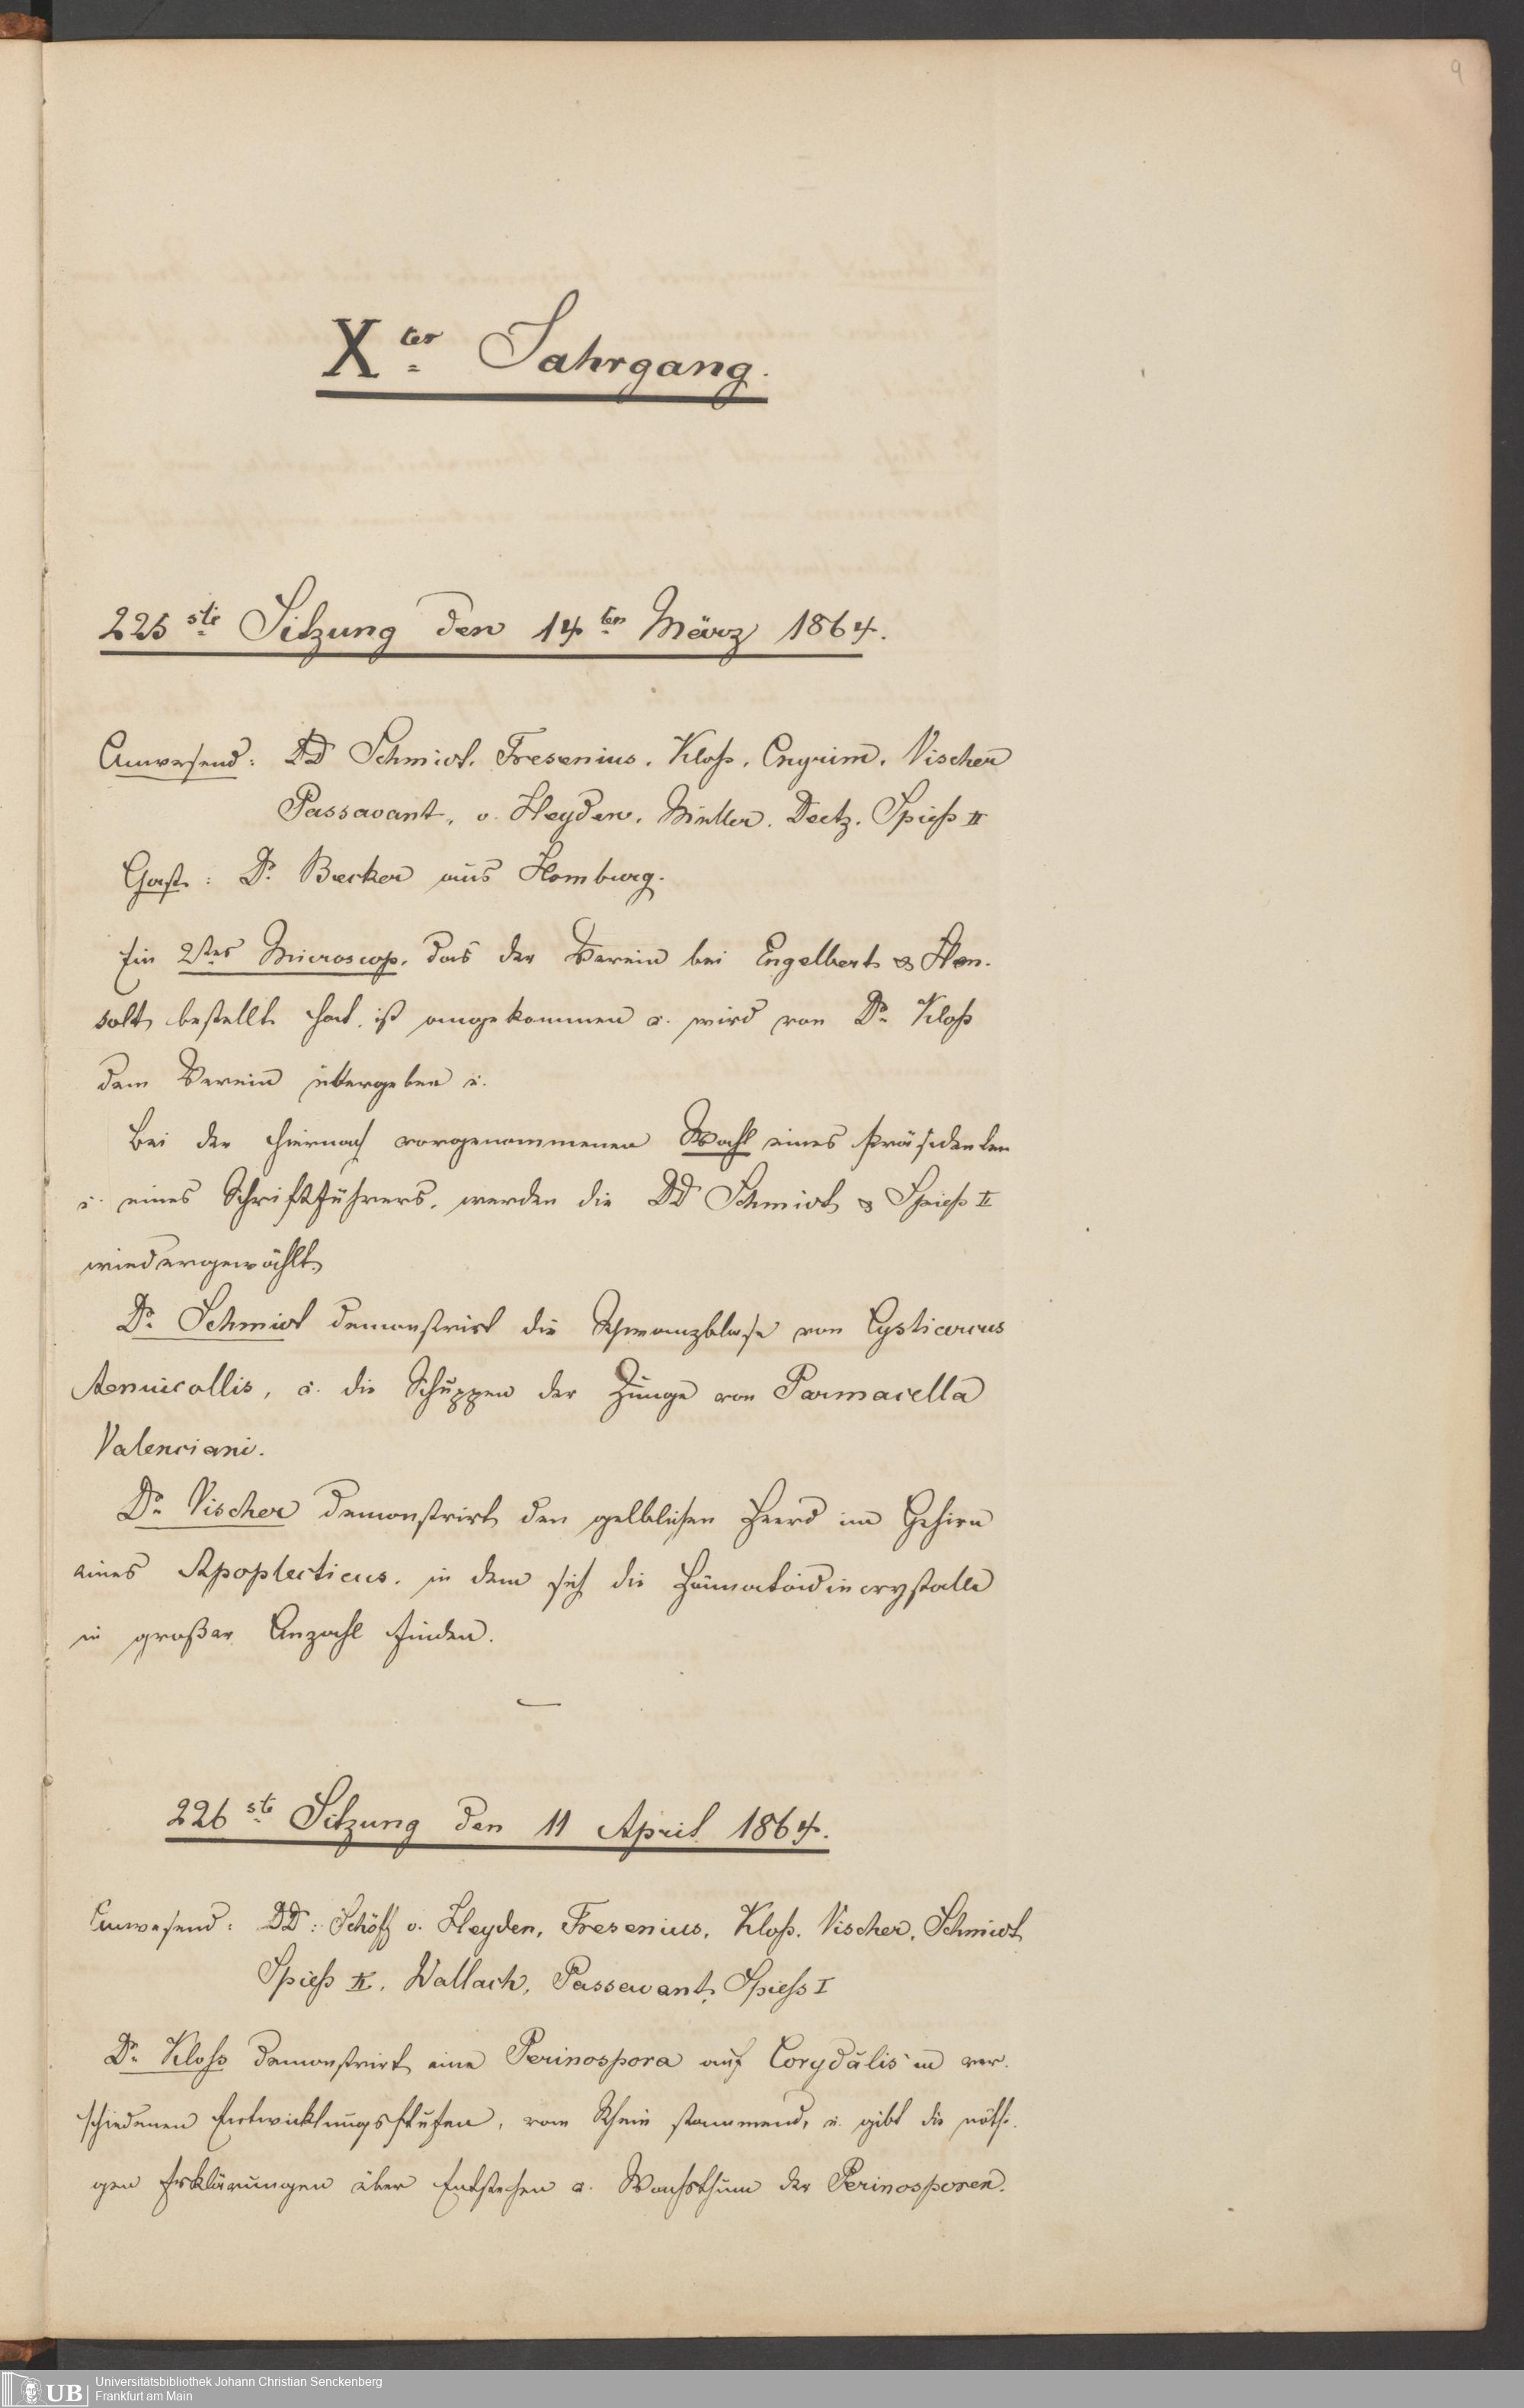 9
Xter Jahrgang.
225ste Sitzung den 14ten März 1864.
Anwesend: DD Schmidt, Fresenius, Kloß, Engrim, Vischer
Passavant, v. Heyden, Müller, Deetz, Spieß II
Gast: Dr. Becker aus Homburg.
Ein 2tes Microscop, das der Verein bei Engelbert & Hen-
solt bestellt hat, ist angekommen u. wird von Dr. Kloß
dem Verein übergeben u.
Bei der hiernach vorgenommenen Wahl eines Präsidenten
u. eines Schriftführers, werden die DD Schmidt & Spieß II
wiedergewählt.
Dr. Schmidt demonstrirt die Schwanzblase von Cysticercus
tenuicollis, u. die Schuppen der Zunge von Parmacella
Valenciani.
Dr. Vischer demonstrirt den gelblichen Heerd im Gehirn
eines Apoplecticus, in dem sich die Hämatoidincrystalle
in großer Anzahl finden.
226ste Sitzung den 11 April 1864.
Anwesend: DD: Schöff v. Heyden, Fresenius, Kloß, Vischer, Schmidt
Spieß II, Wallach, Passavant, Spiess I
Dr. Kloß demonstrirt eine Perinospora auf Corydalis in ver-
schiedenen Entwicklungsstufen, vom Rhein stammend, u. gibt die nöthi-
gen Erklärungen über Entstehen u. Wachsthum der Perinosporen.
UB Universitätsbibliothek Johann Christian Senckenberg
Frankfurt am Main